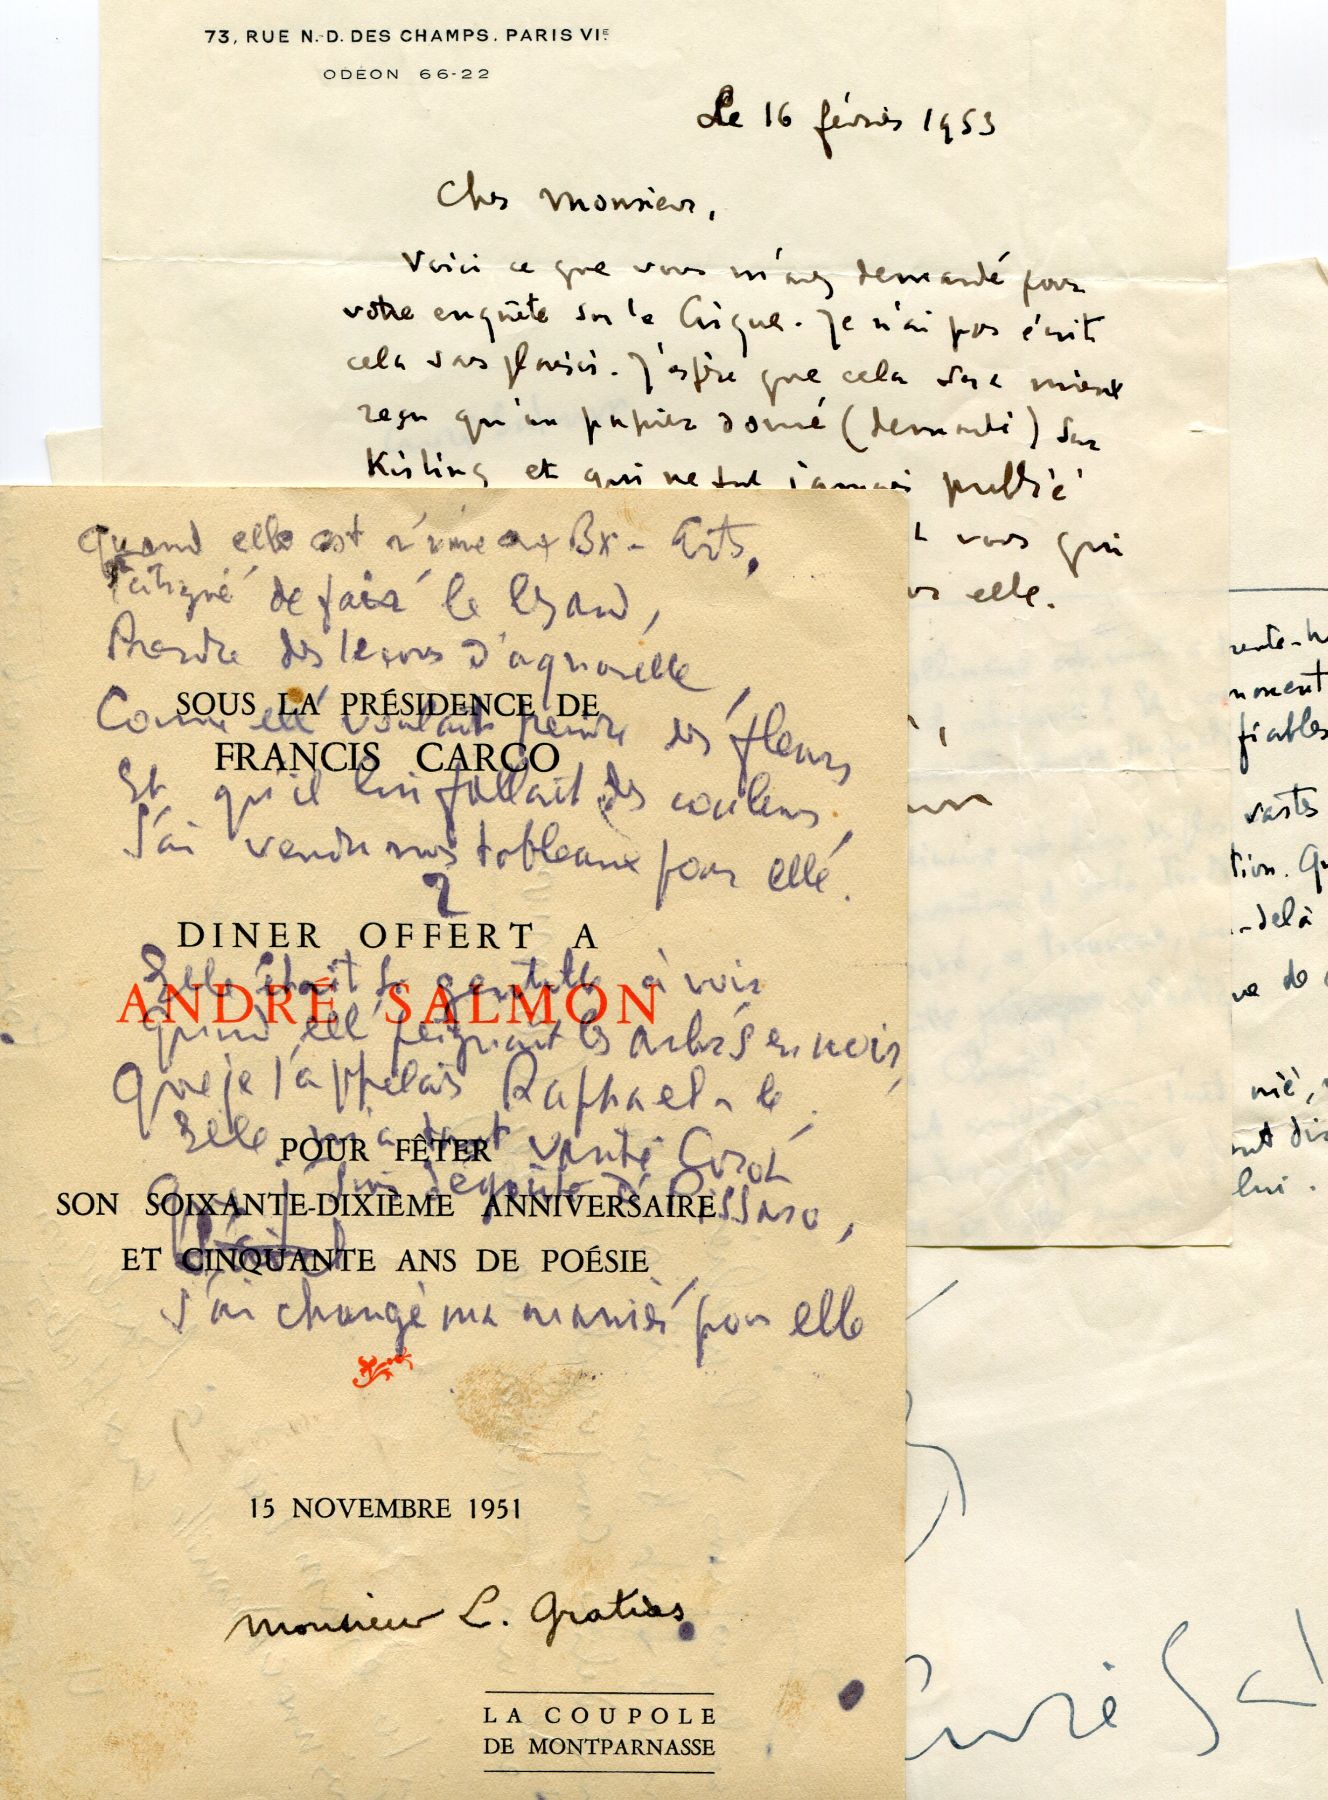 73, RUE N.-D. DES CHAMPS. PARIS VIE
ODÉON 66-22
Le 16 février 1953
Cher Monsieur,
Voici ce que vous m'avez demandé pour
votre enquête sur le Cirque. Je n'ai pas écrit
cela sans plaisir. J'espère que cela sera mieux
reçu qu'un papier donné (demandé) sur
Kisling et qui ne fut jamais publié
vous qui
elle.
Quand elle est r'v'nue aux Bx-Arts,
Fatigué de faire le lézard,
Prendre des leçons d'aquarelle,
Comme ell' voulait peindre des fleurs
Et qu'il lui fallait des couleurs,
J'ai vendu mes tableaux pour elle.
SOUS LA PRÉSIDENCE DE
FRANCIS CARCO
2
DINER OFFERT A
ANDRÉ SALMON
Elle était si gentille à voir
Quand ell' peignait les arbr's en noir,
Que je l'app'lais Raphael-le.
Elle m'a tant vanté Corot
Que j'suis dégoûté d'Pissaro,
J'ai changé ma manièr' pour elle
POUR FÊTER
SON SOIXANTE-DIXIÈME ANNIVERSAIRE
ET CINQUANTE ANS DE POÉSIE
15 NOVEMBRE 1951
Monsieur L. Gratias
LA COUPOLE
DE MONTPARNASSE
moment
fiables
vastes
tion. Qu
-delà
de
nié,
lui.